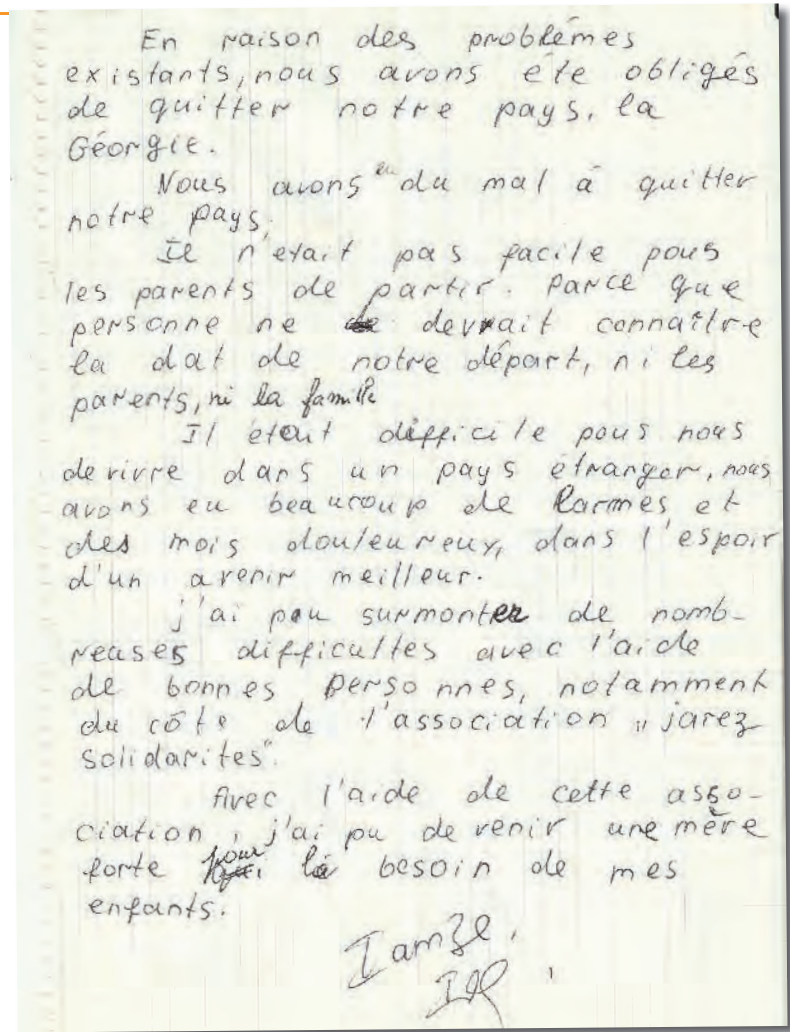 En raison des problèmes
existants, nous avons éte obligés
de quitter notre pays, la
Géorgie.
Nous avons eu du mal à quitter
notre pays.
Il n'etait pas facile pous
les parents de partir. Parce que
personne ne devrait connaître
la dat de notre départ, ni les
parents, ni la famille
Il etait difficile pous nous
de vivre dans un pays étranger, nous
avons eu beaucoup de larmes et
des mois douleureux, dans l'espoir
d'un avenir meilleur.
j'ai pou surmonter de nomb-
reuses difficultes avec l'aide
de bonnes personnes, notamment
du côte de l'association „jarez
solidarites".
Avec l'aide de cette asso-
ciation, j'ai pu devenir une mère
forte pour le besoin de mes
enfants.
Iamze.